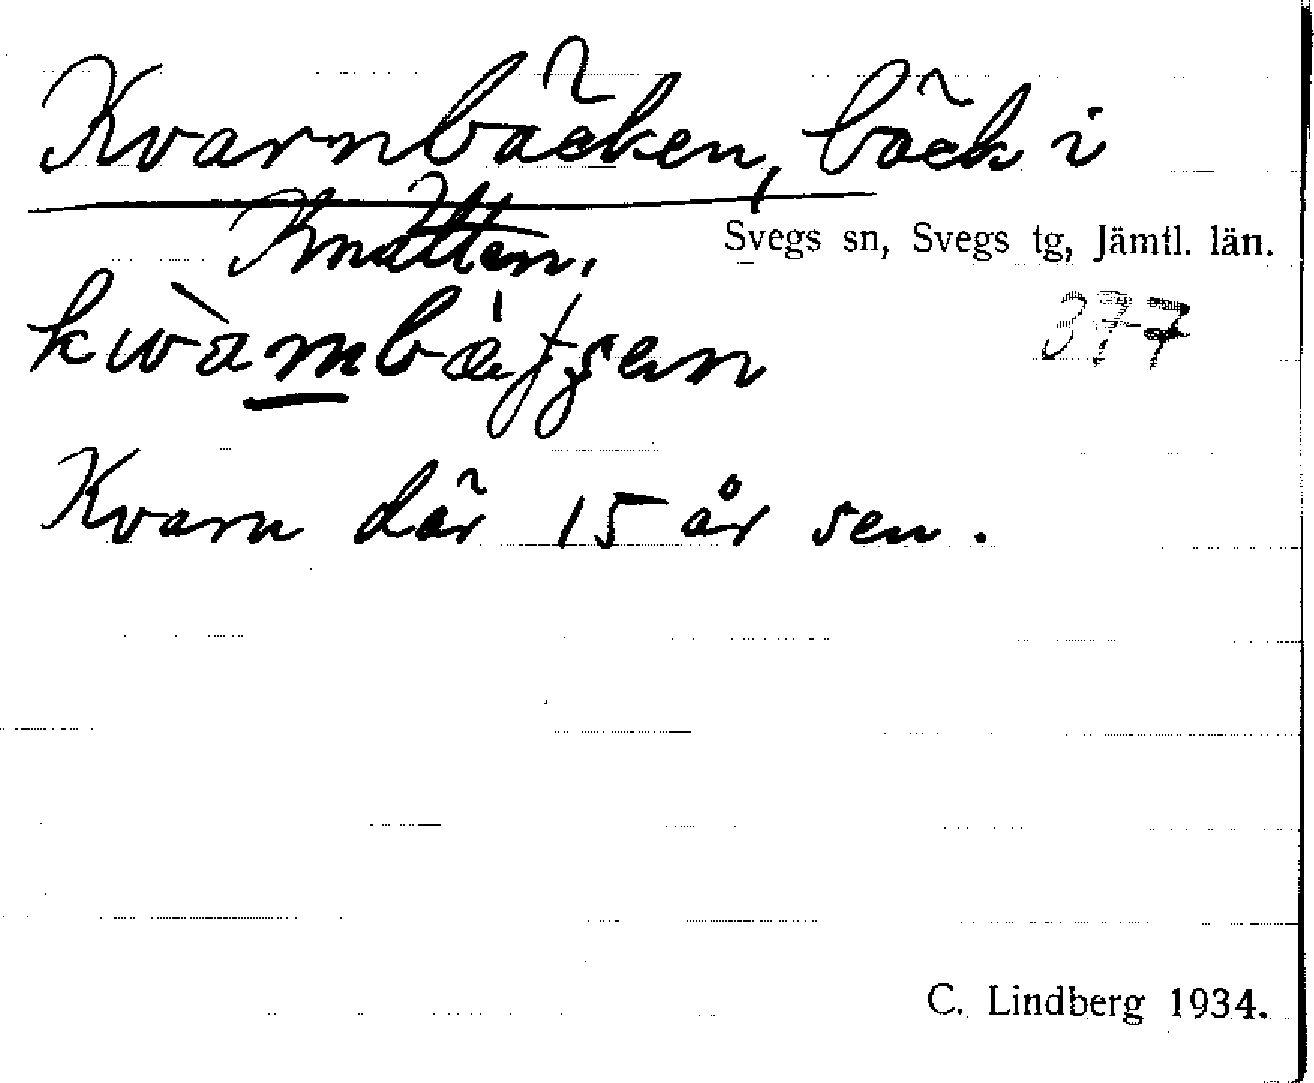 Kvarnbäcken, bäck i
Knätten.
Svegs sn, Svegs tg, Jämtl. län.
377
Kvarn där 15 år sen.
C. Lindberg 1934.